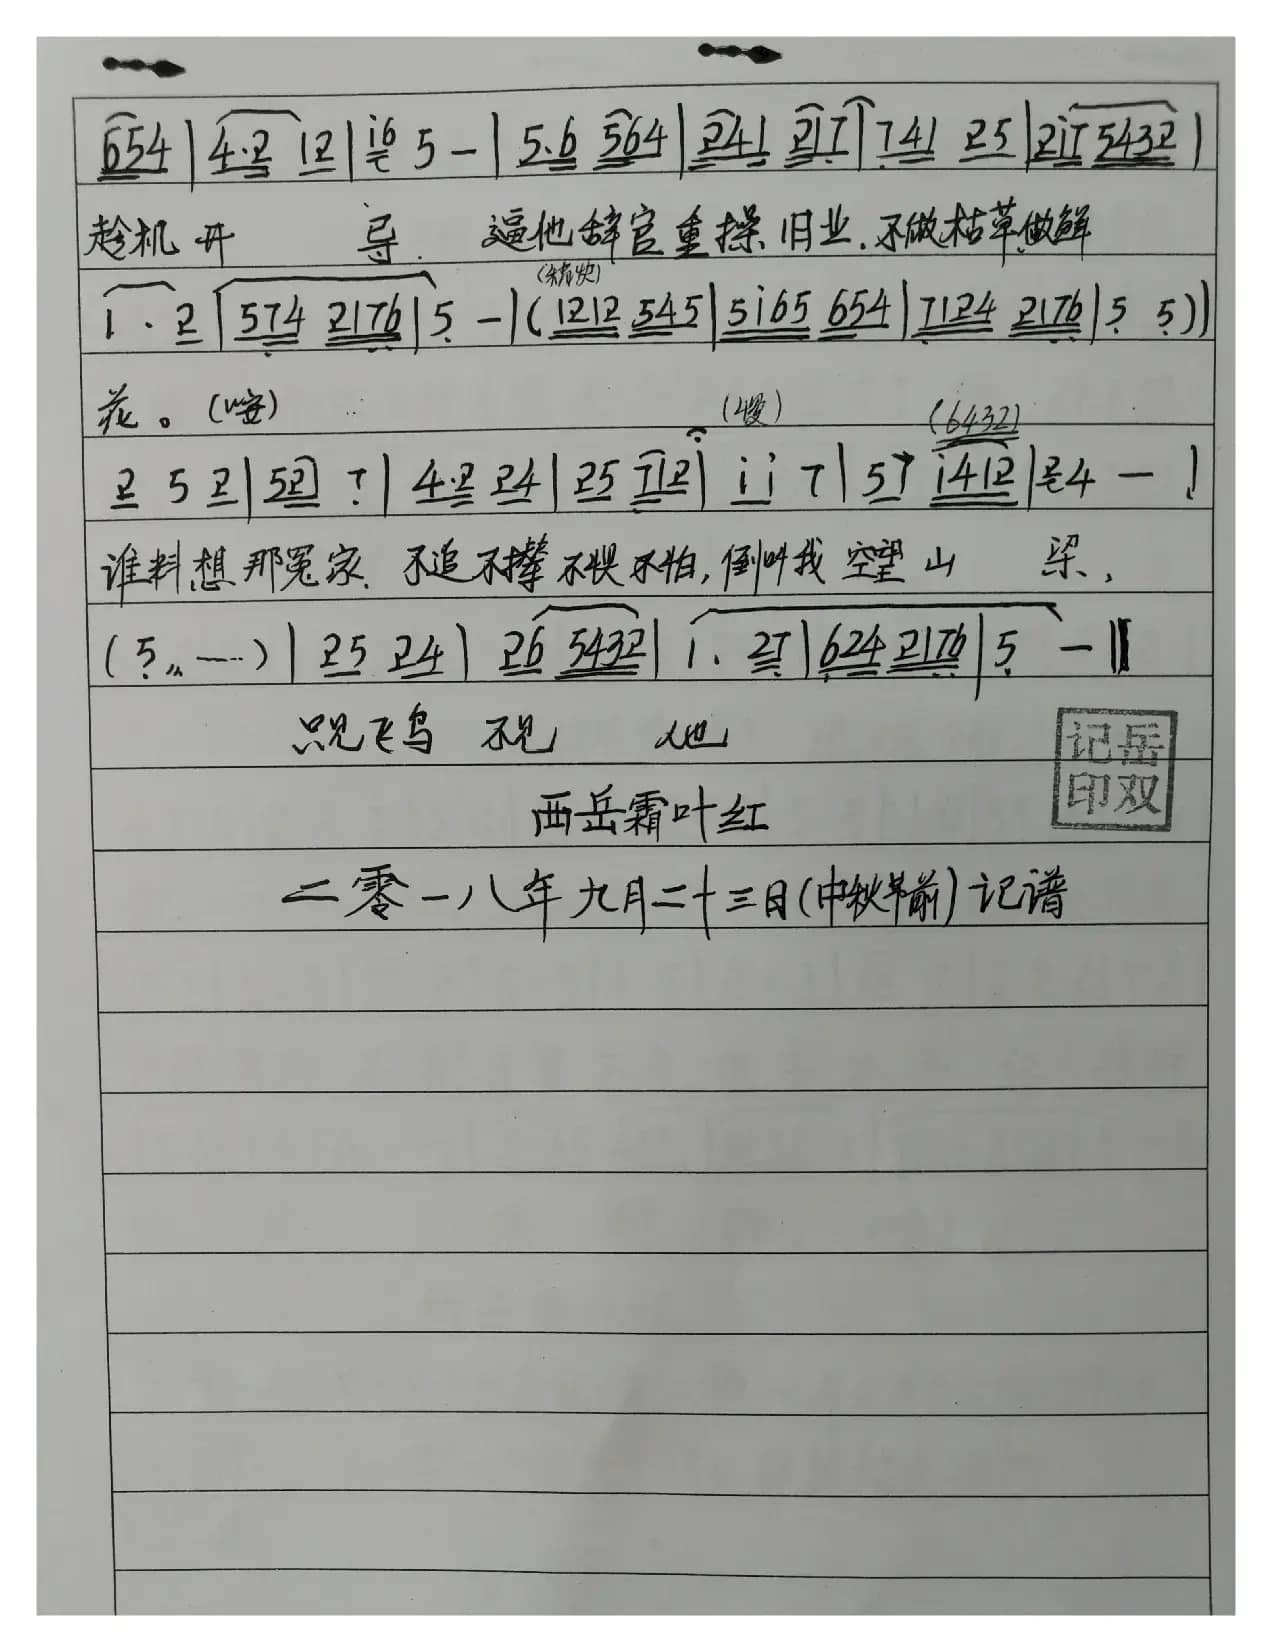 654 | 4·2 12 | i6 5 — | 5·6 564 | 241 217 | 741 25 | 2i7 5432 |
趁机开 导. 逼他辞官重操旧业.不做枯草做鲜
(稍快)
i · 2 | 574 2176 | 5 — | (1212 545 | 5i65 654 | 7124 2176 | 5 5))
花。(安) (慢)
(6432)
2 5 2 | 52 7 | 4·2 24 | 25 712 | i i 7 | 57 i412 | 24 — |
谁料想那冤家.不追不撵不惧不怕,倒叫我空望山 梁,
(5〃 ……) | 25 24 | 26 5432 | i· 27 | 624 2176 | 5 — ‖
只见飞鸟 不见 他
记岳
印双
西岳霜叶红
二零一八年九月二十三日(中秋节前)记谱